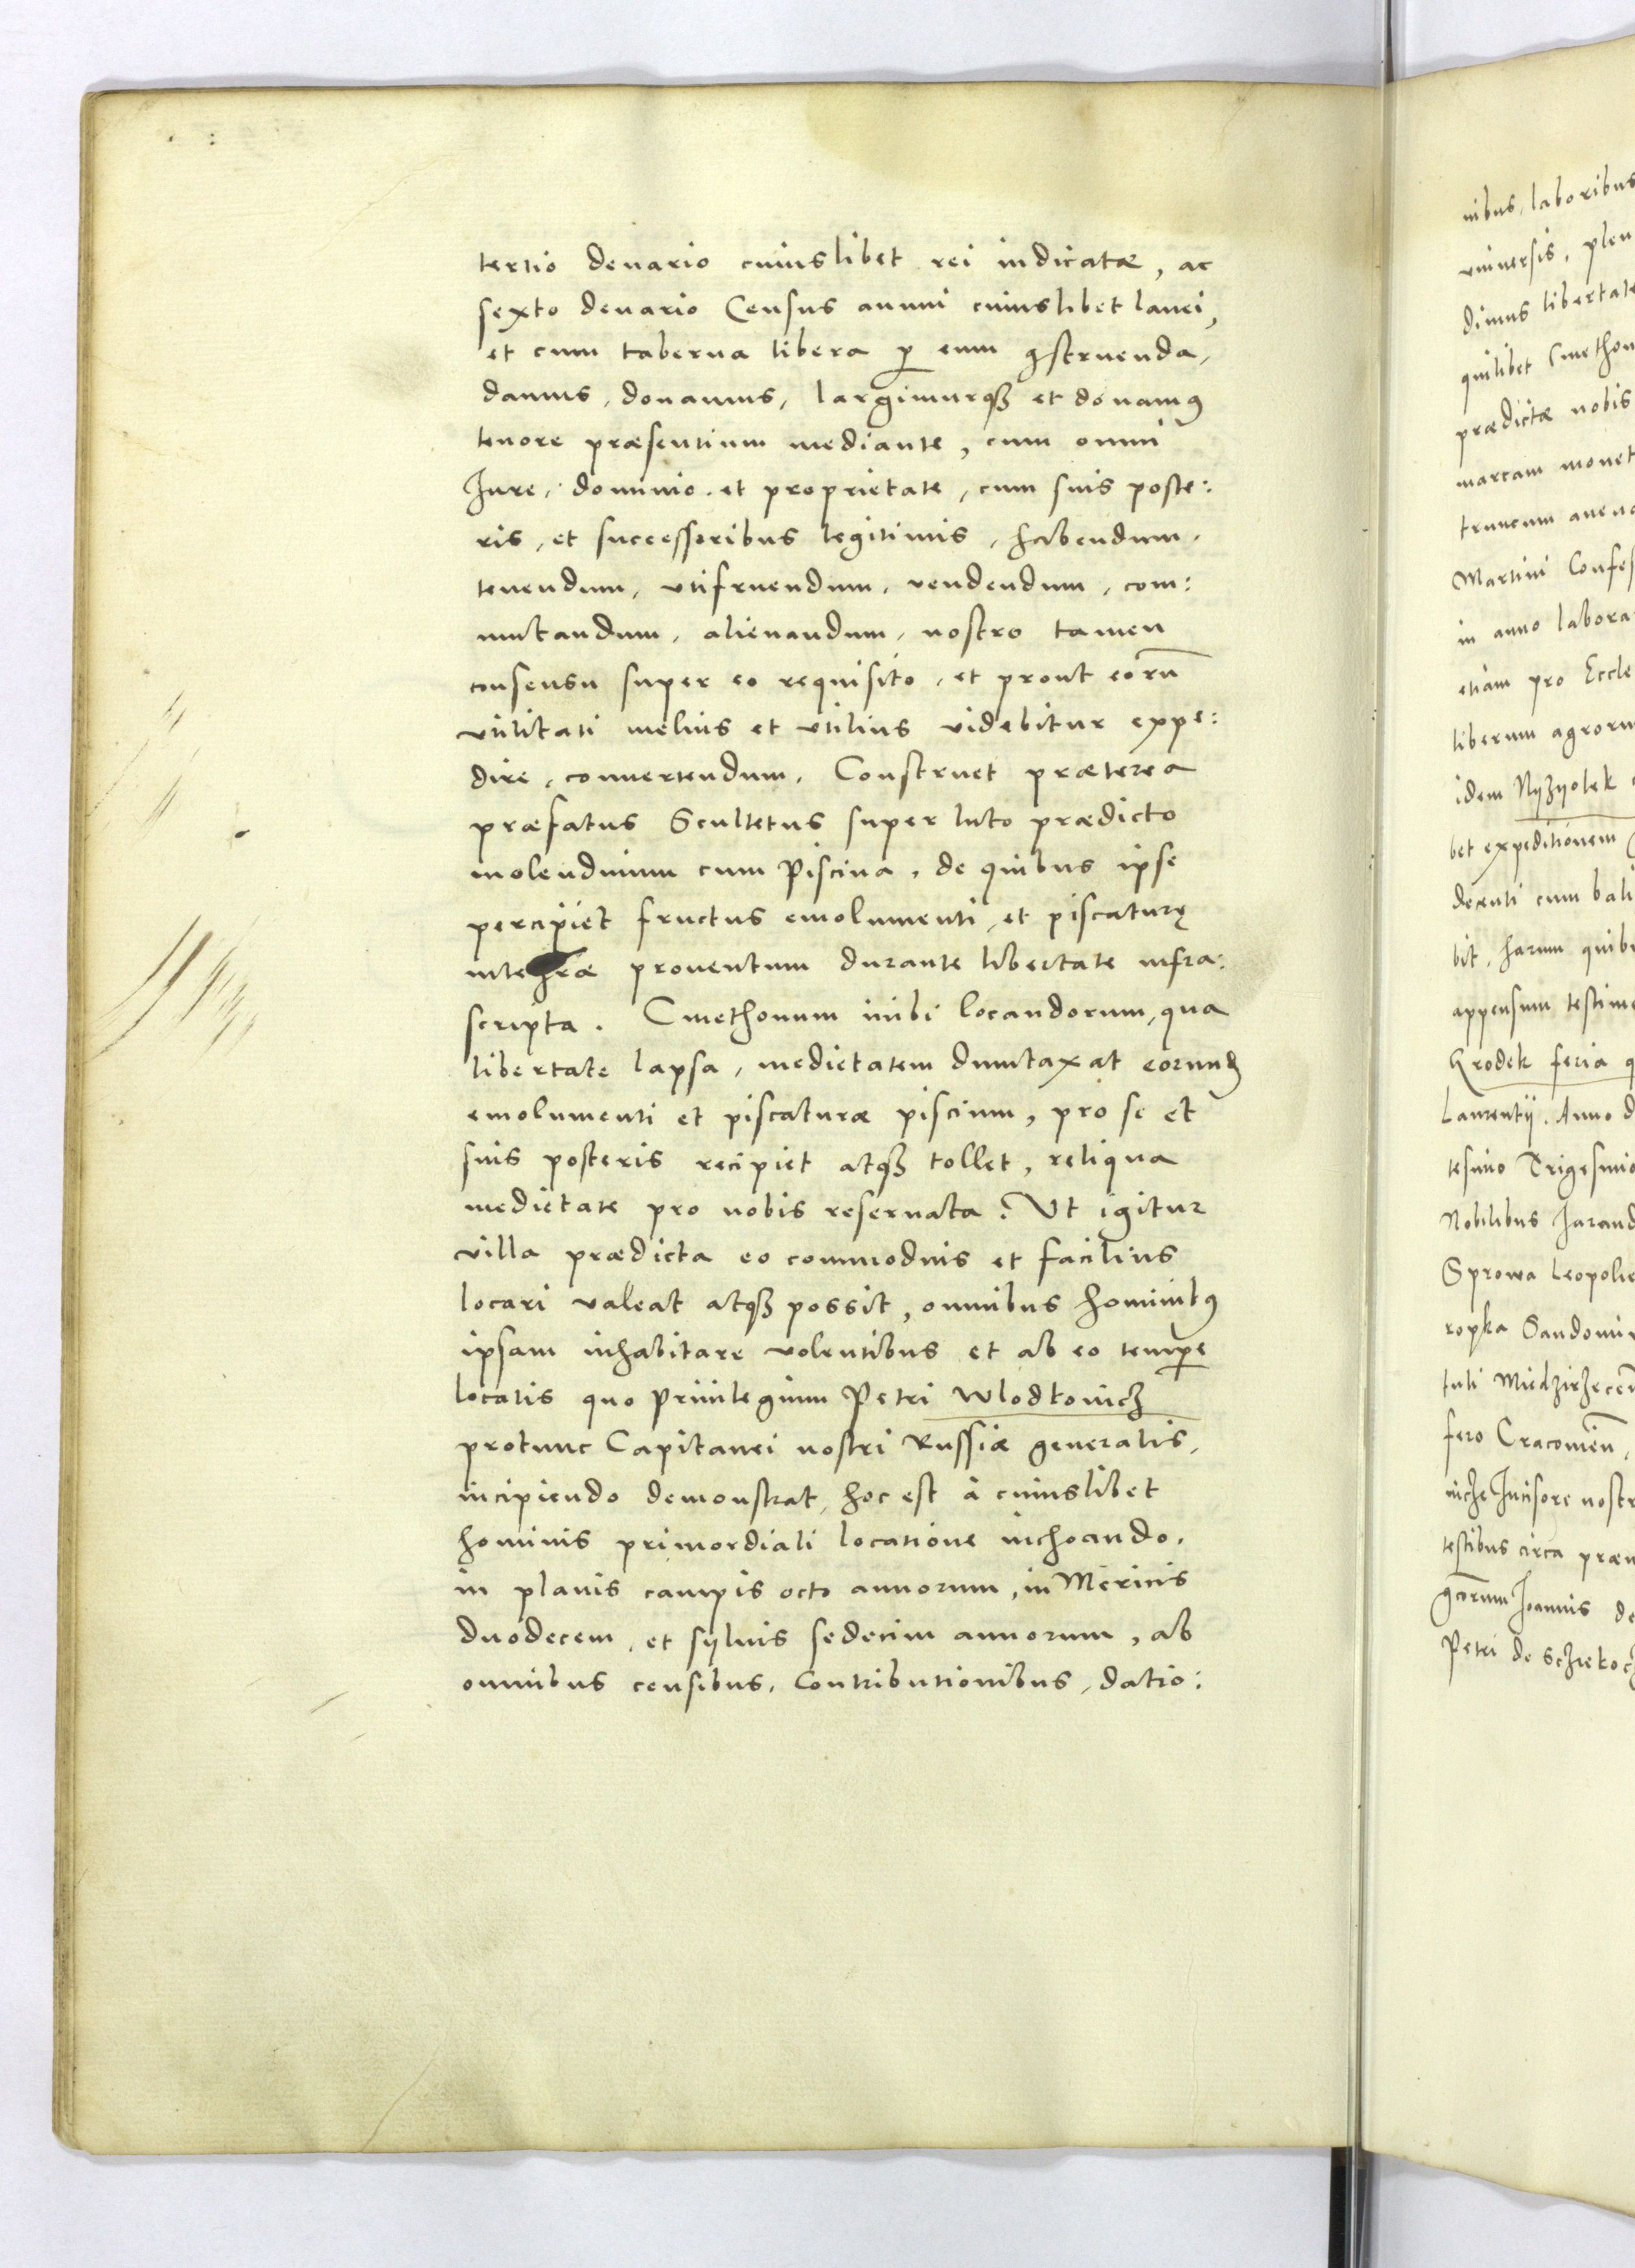 tertio denario cuiuslibet rei iudicatæ, ac
sexto denario Census annui cuiuslibet lanei,
et cum taberna libera ꝑ eum ꝯstruenda,
damus, donamus, largimurqꝫ et donamꝰ
tenore præsentium mediante, cum omni
Jure, dominio et proprietate, cum suis poste:
ris, et successoribus legitimis, habendum,
tenendum, vtifruendum, vendendum, com:
mutandum, alienandum, nostro tamen
consensu super eo requisito, et prout eorū
vtilitati melius et vtilius videbitur expe:
dire, conuertendum. Construet præterea
præfatus Scultetus super luto prædicto
molendinum cum Piscina, de quibus ipse
percipiet fructus emolumenti, et piscaturę
integræ prouentum durante libertate infra:
scripta. Cmethonum inibi locandorum, qua
libertate lapsa, medietatem dumtaxat eorundꝫ
emolumenti et piscaturæ piscium, pro se et
suis posteris recipiet atqꝫ tollet, reliqua
medietate pro nobis reseruata. Vt igitur
villa prædicta eo commodius et facilius
locari valeat atqꝫ possit, omnibus hominibꝰ
ipsam inhabitare volentibus et ab eo temꝑe
locatis quo Priuilegium Petri Wlodkouicz
protunc Capitanei nostri Russiæ generalis,
incipiendo demonstrat, hoc est à cuiuslibet
hominis primordiali locatione inchoando,
in planis campis octo annorum, in Mericis
duodecem, et syluis sedecim annorum, ab
omnibus censibus, Contributionibus, datio:
nibus, laboribus
vniuersis, plen
dimus libertate
quilibet Cmethon
prædictæ nobis
marcam monet
truncum auena
Martini Confes
in anno labora
etiam pro Eccle
liberum agroru
idem Nyzyolek
bet expeditionem
decenti cum bali
bit, harum quibu
appensum testimo
Grodek feria q
Laurentij. Anno d
tesimo Trigesimo
Nobilibus Jarand
Sprowa Leopolie
ropka Sandomir
tuti Miedzirzecen̄
fero Cracouien̄,
niche Incisore nostr
testibus circa præm
gcorum Joannis de
Petri de Sczekoc